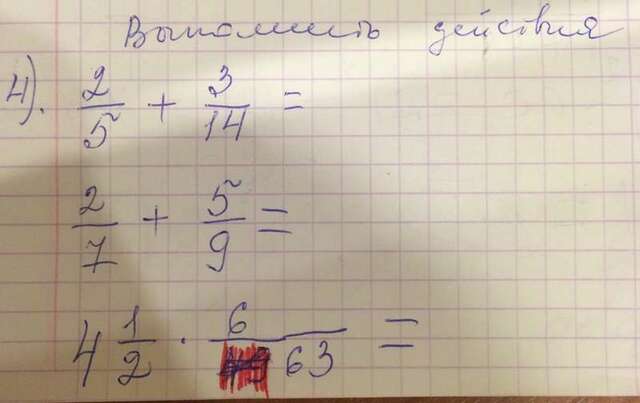 Выполнить действия
4). 2/5 + 3/14 =
2/7 + 5/9 =
4 1/2 · 6/63 =